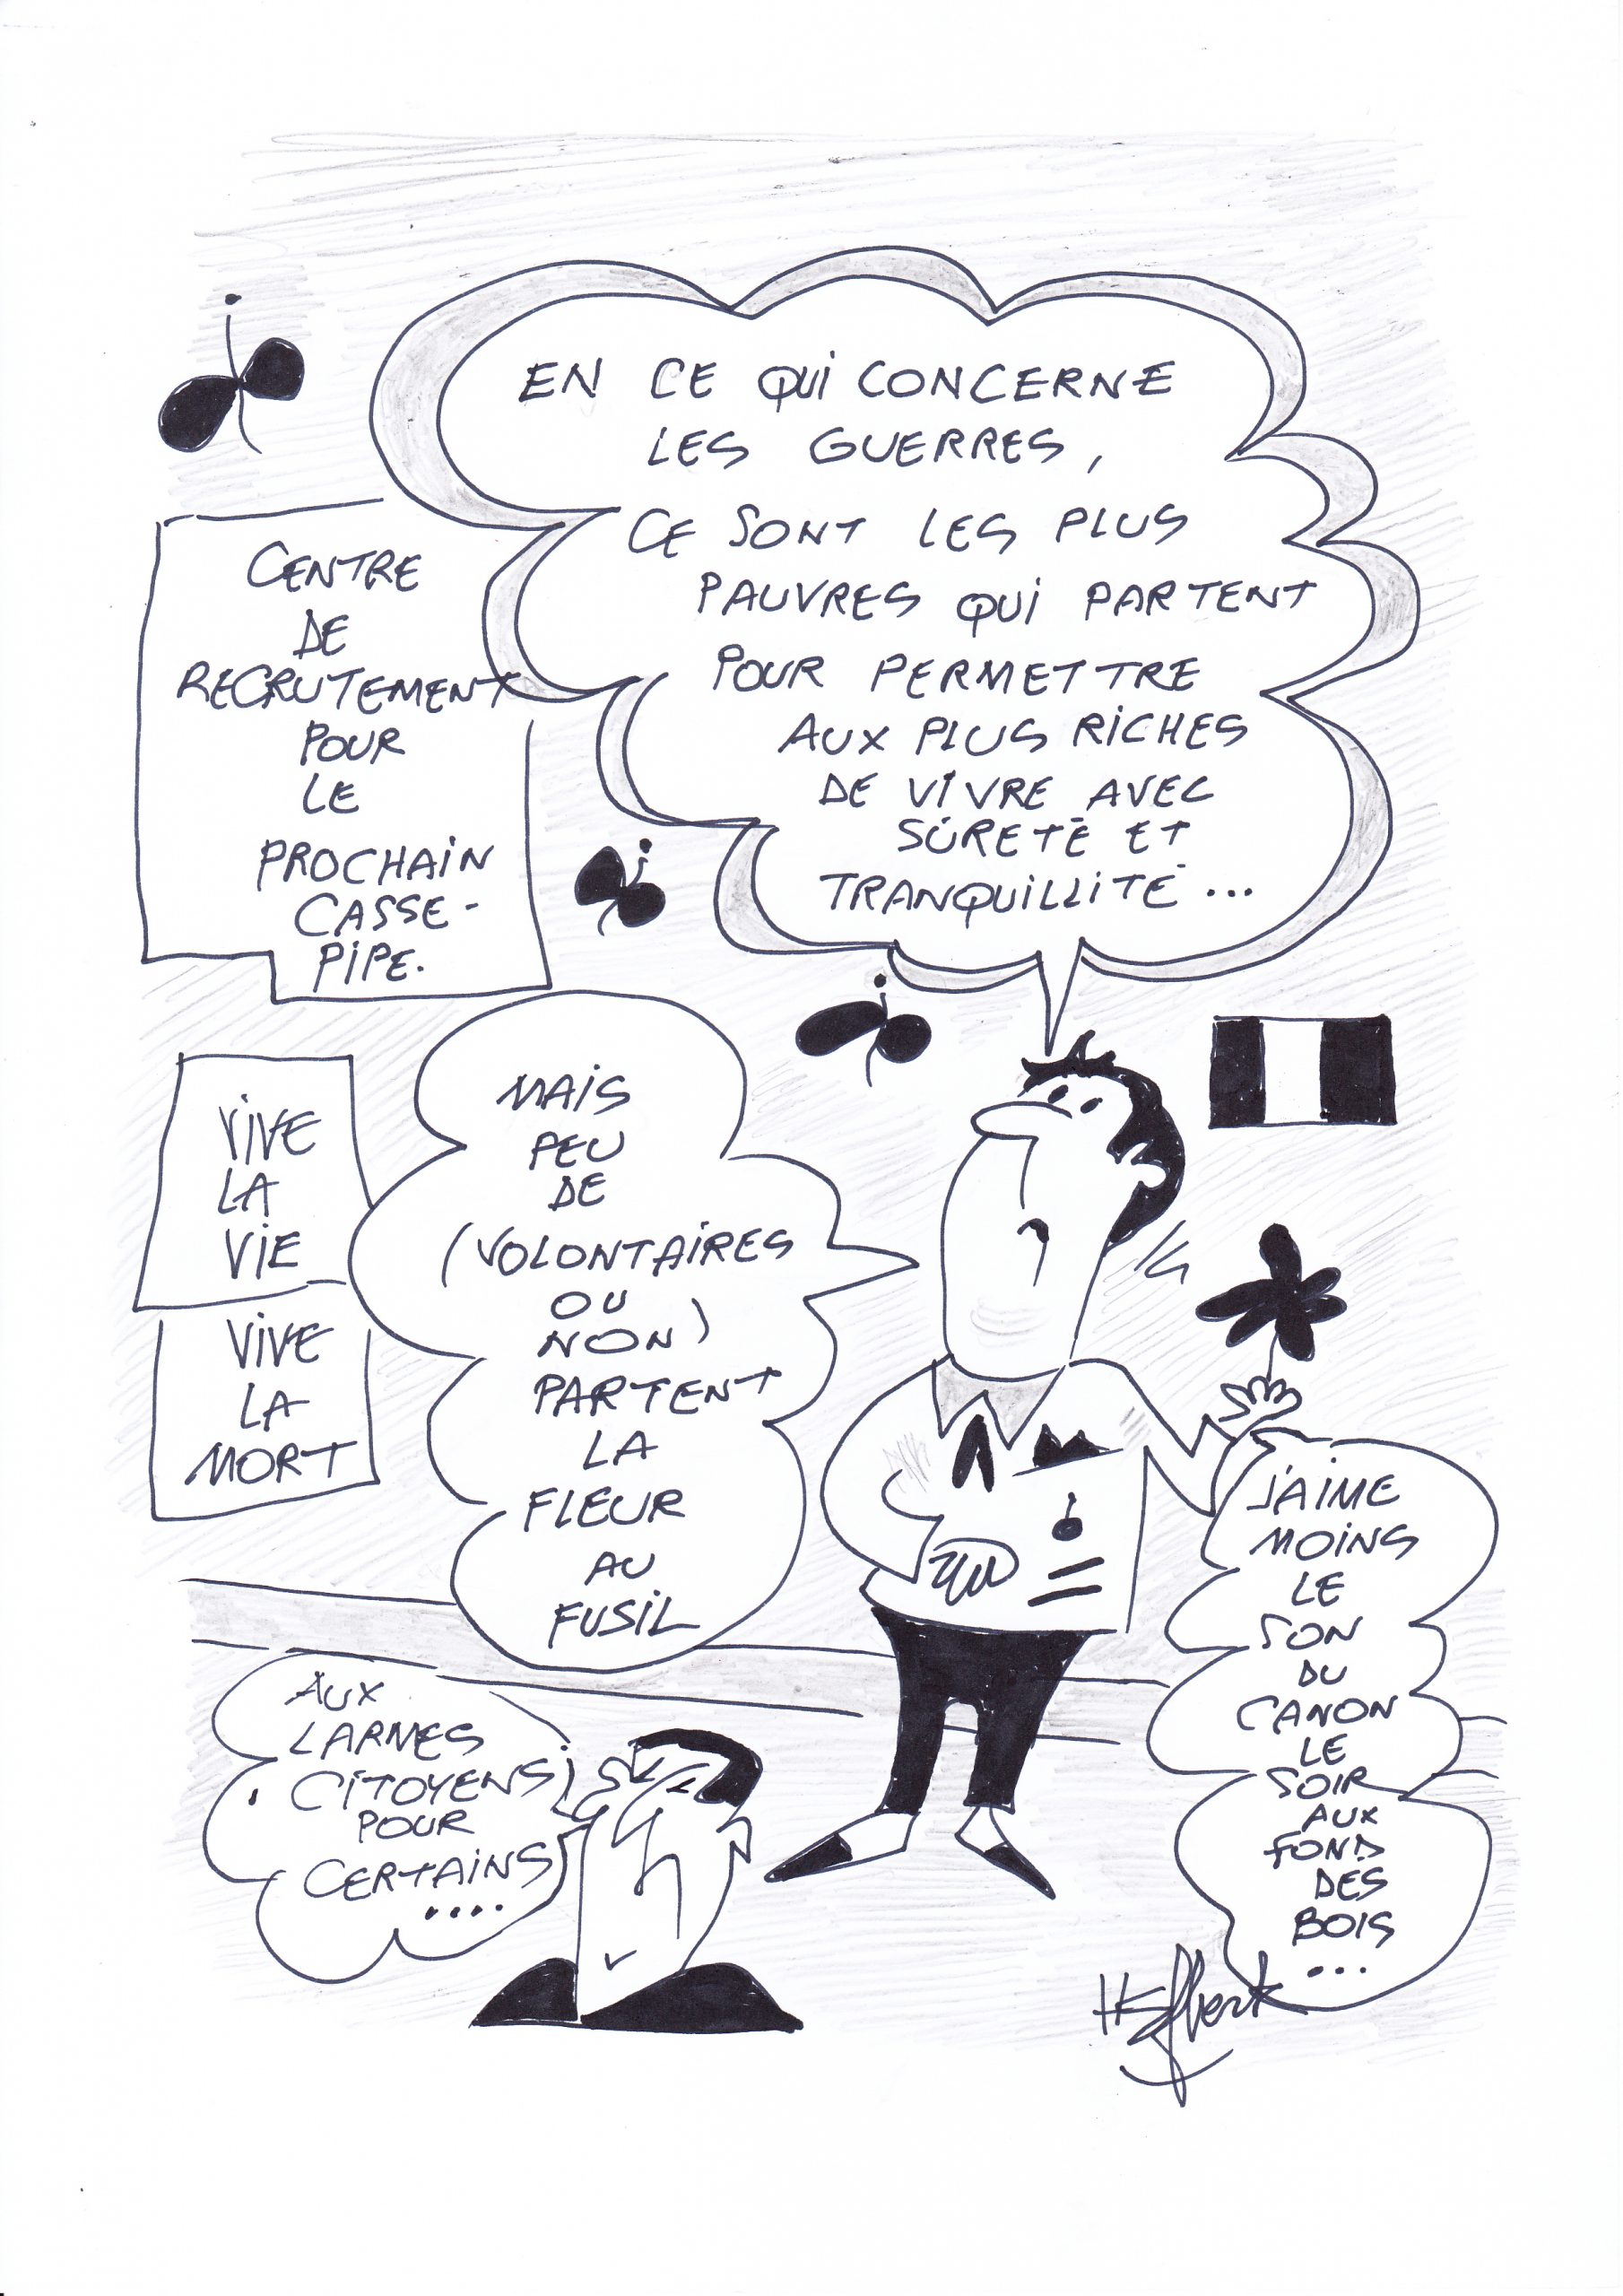 EN CE QUI CONCERNE
LES GUERRES,
CE SONT LES PLUS
PAUVRES QUI PARTENT
POUR PERMETTRE
AUX PLUS RICHES
DE VIVRE AVEC
SÛRETÉ ET
TRANQUILLITÉ...
CENTRE
DE
RECRUTEMENT
POUR
LE
PROCHAIN
CASSE-
PIPE.
MAIS
PEU
DE
(VOLONTAIRES
OU
NON)
PARTENT
LA
FLEUR
AU
FUSIL
VIVE
LA
VIE
VIVE
LA
MORT
J'AIME
MOINS
LE
SON
DU
CANON
LE
SOIR
AUX
FOND
DES
BOIS
...
AUX
LARMES
CITOYENS
POUR
CERTAINS
....